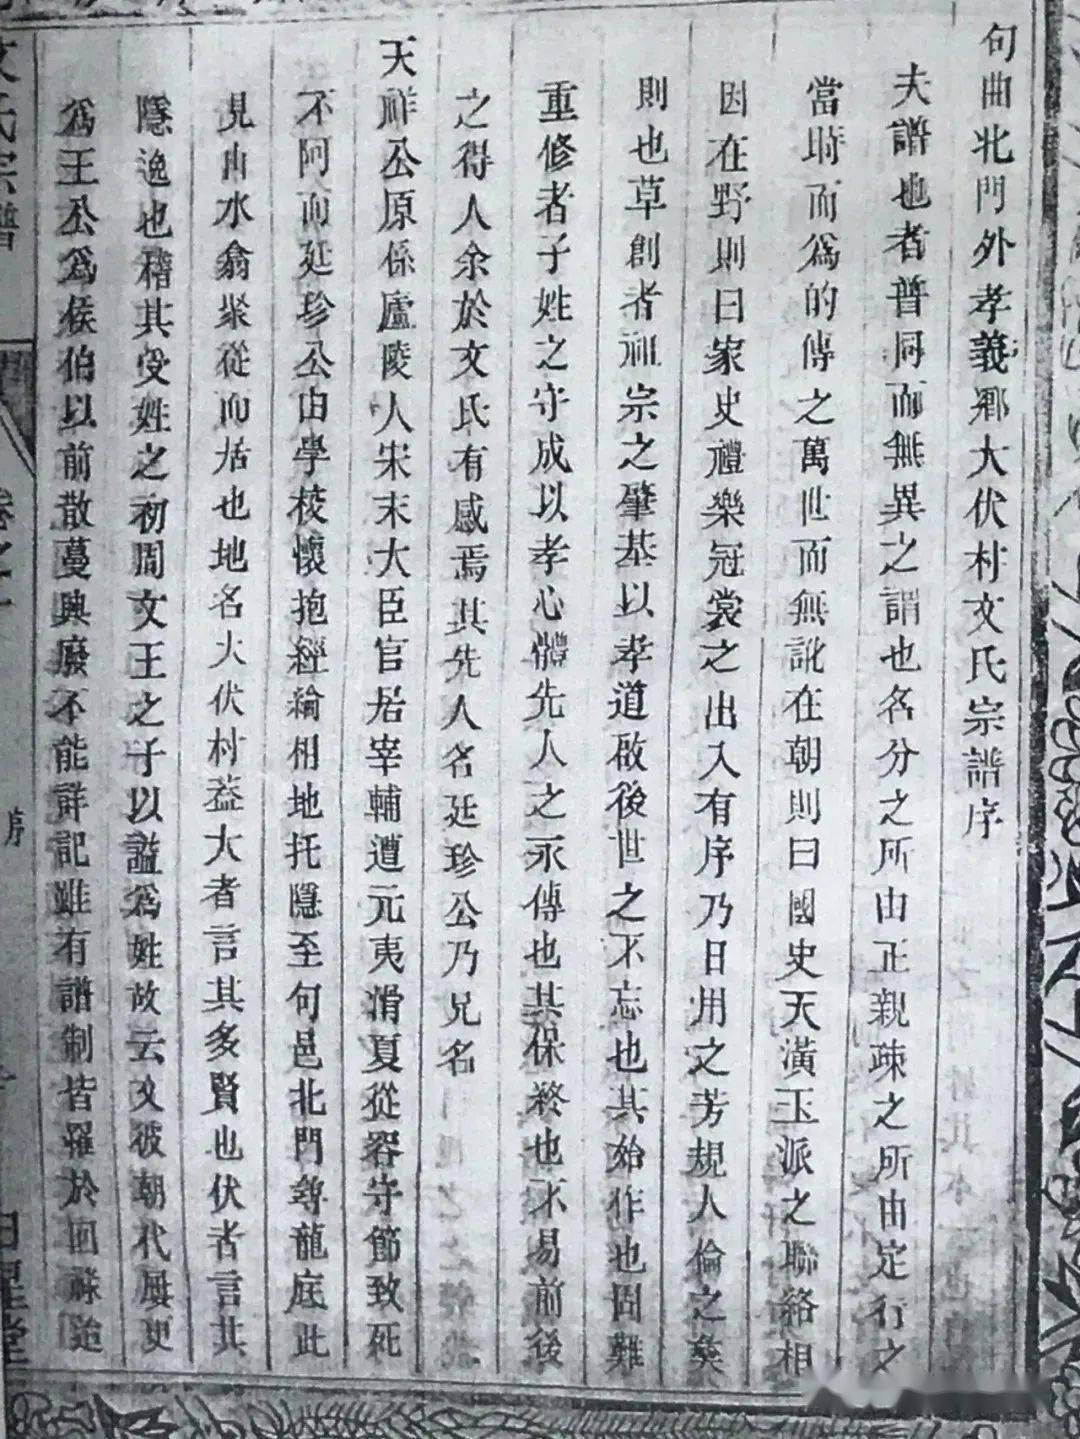 句曲北門外孝義鄉大伏村文氏宗譜序
夫譜也者普同而無異之謂也名分之所由正親疎之所由定行之
當時而爲的傳之萬世而無訛在朝則曰國史天潢玉派之聯絡相
因在野則曰家史禮樂冠裳之出入有序乃日用之芳規人倫之彝
則也草創者祖宗之肇基以孝道啟後世之不忘也其始作也固難
重修者子姓之守成以孝心體先人之永傳也其保終也不易前後
之得人余於文氏有感焉其先人名廷珍公乃兄名
天祥公原係廬陵人宋末大臣官居宰輔遭元夷滑夏從容守節致死
不阿而廷珍公由學校懷抱經綸相地托隱至句邑北門尊龍底此
見山水翕聚從而居也地名大伏村葢大者言其多賢也伏者言其
隱逸也稽其受姓之初周文王之子以謚爲姓故云文彼朝代屢更
爲王公爲侯伯以前散蔓興廢不能詳記雖有譜制皆罹於回祿迨
文氏宗譜
卷之一
序